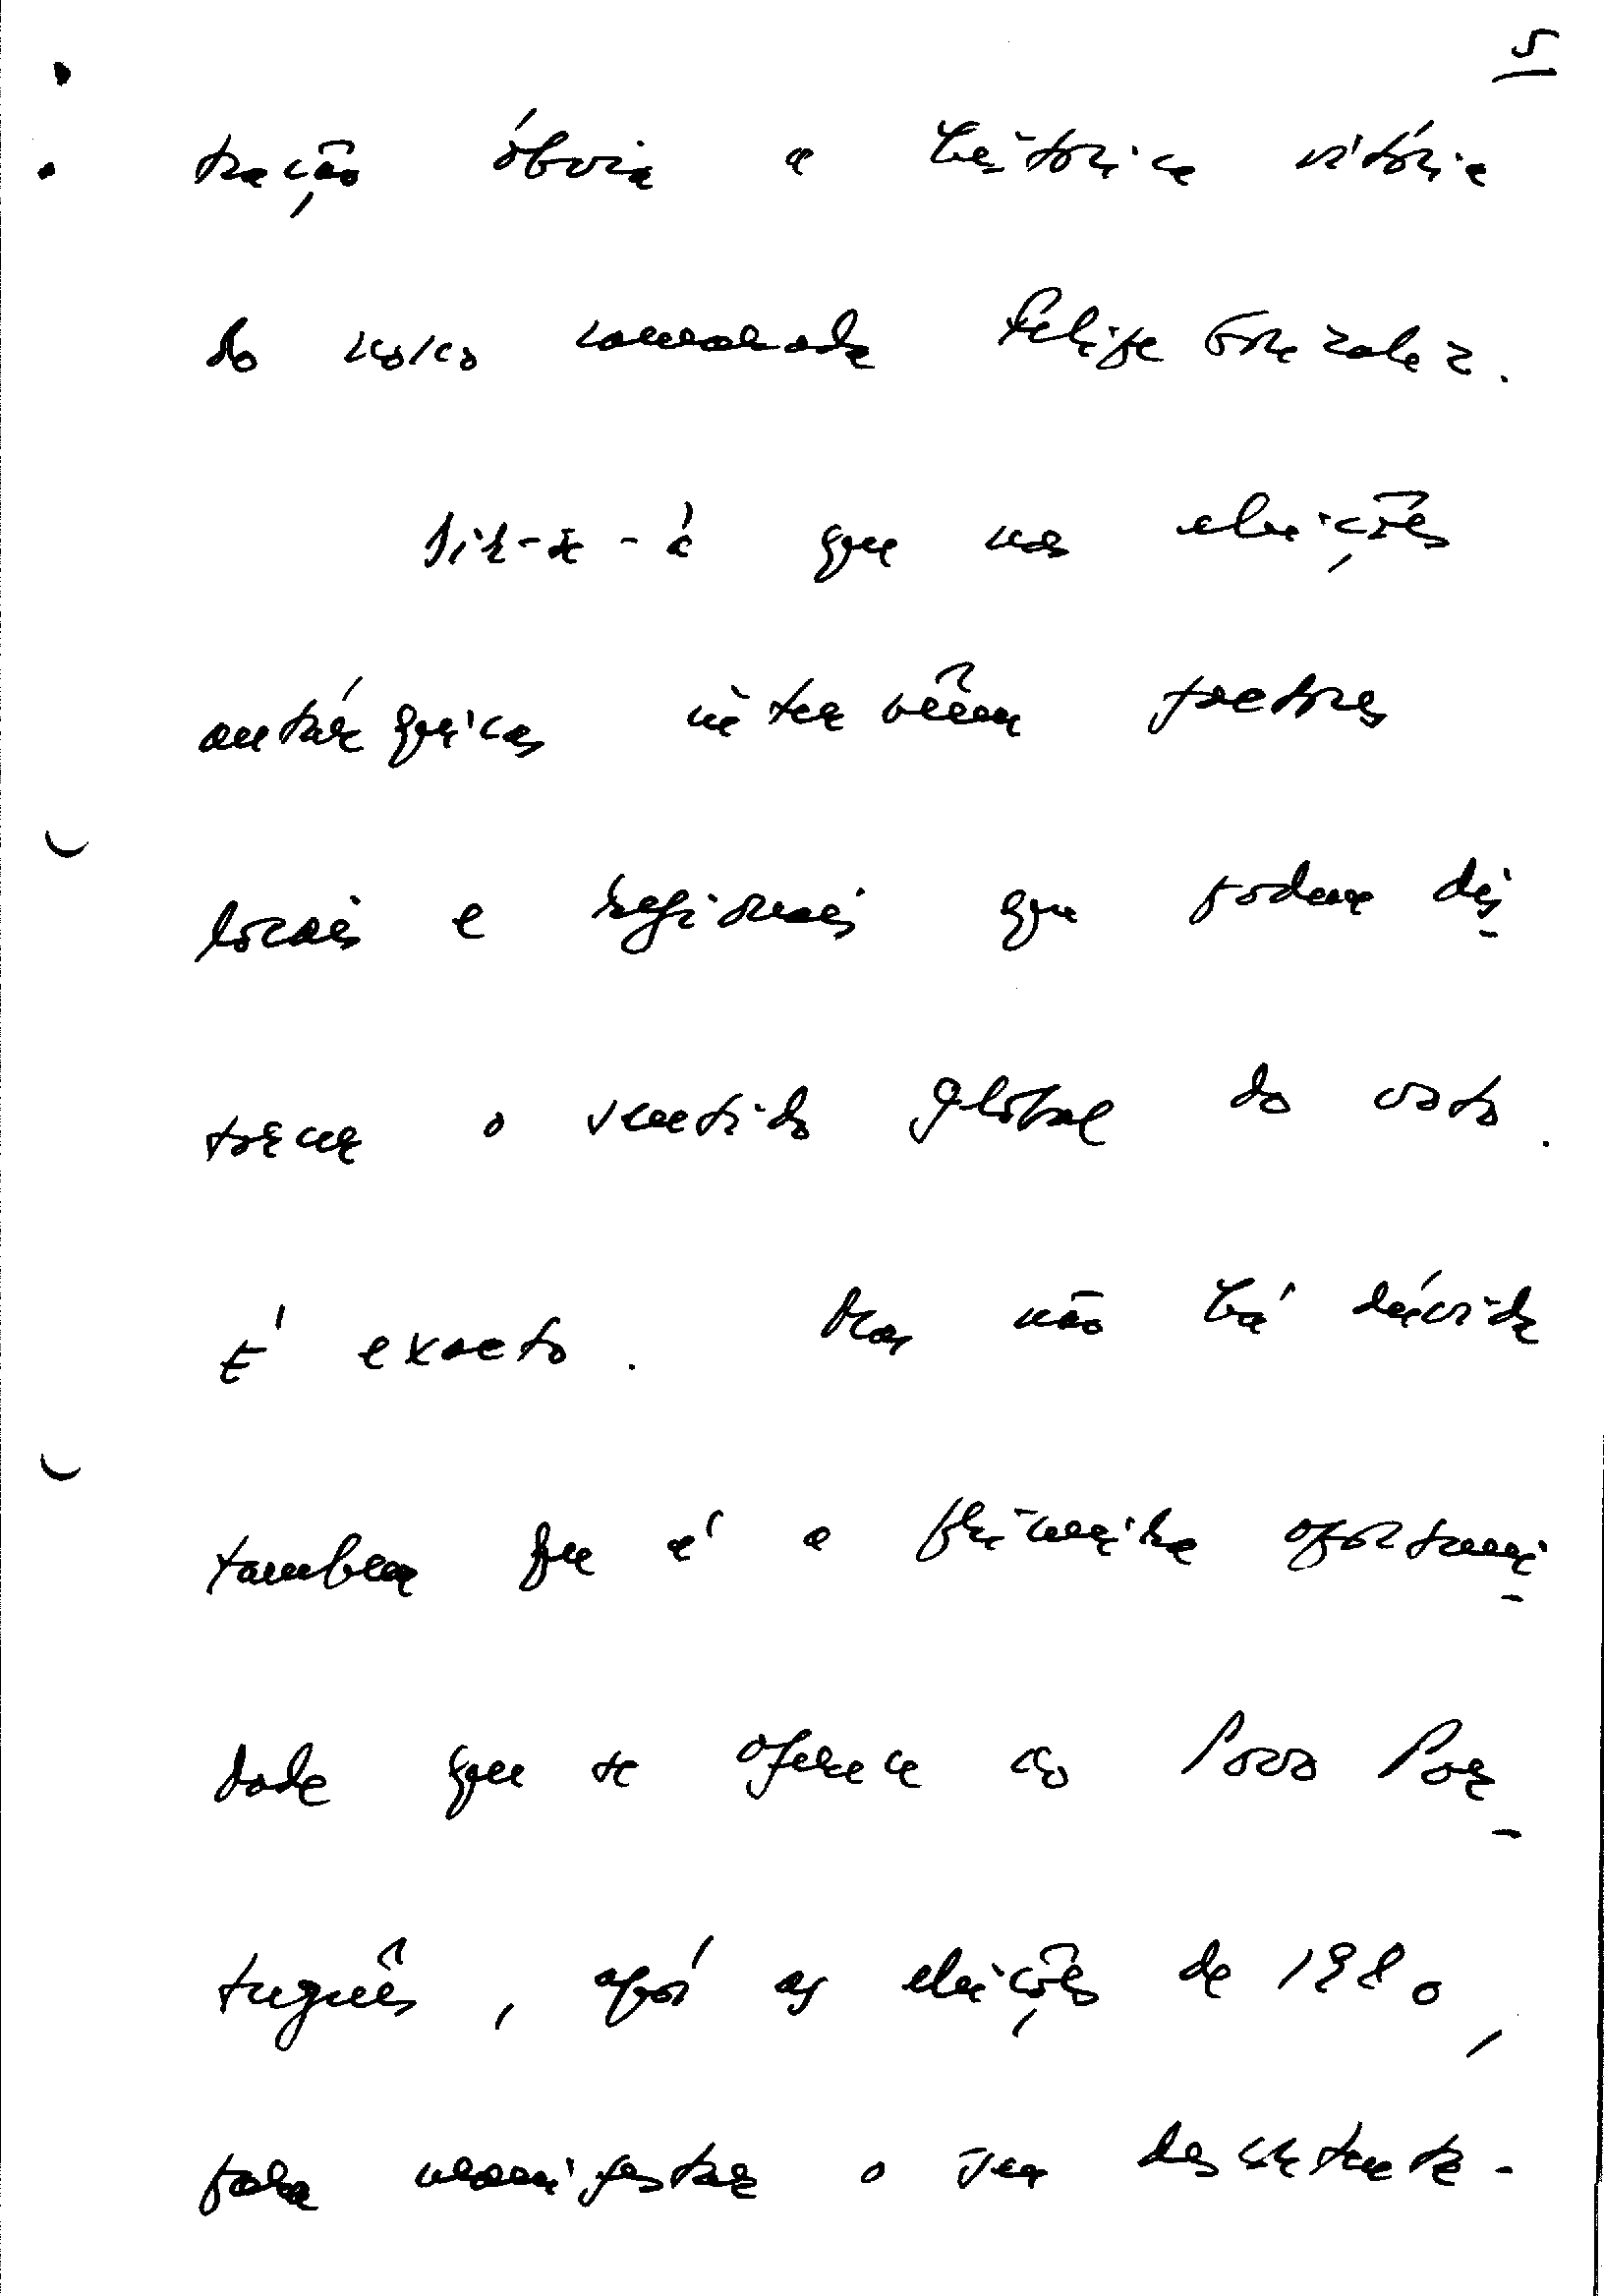 5
tração óbvia a histórica vitória
do nosso camarada Felipe Gonzalez.
Dir-se-á que nas eleições
autárquicas intervêem factores
locais e regionais que podem dis
torcer o sentido global do voto.
É exacto. Mas não há dúvida
tambem que é a primeira oportuni
dade que se oferece ao Povo Por
tuguês, após as eleições de 1980,
para manifestar o seu descontenta-